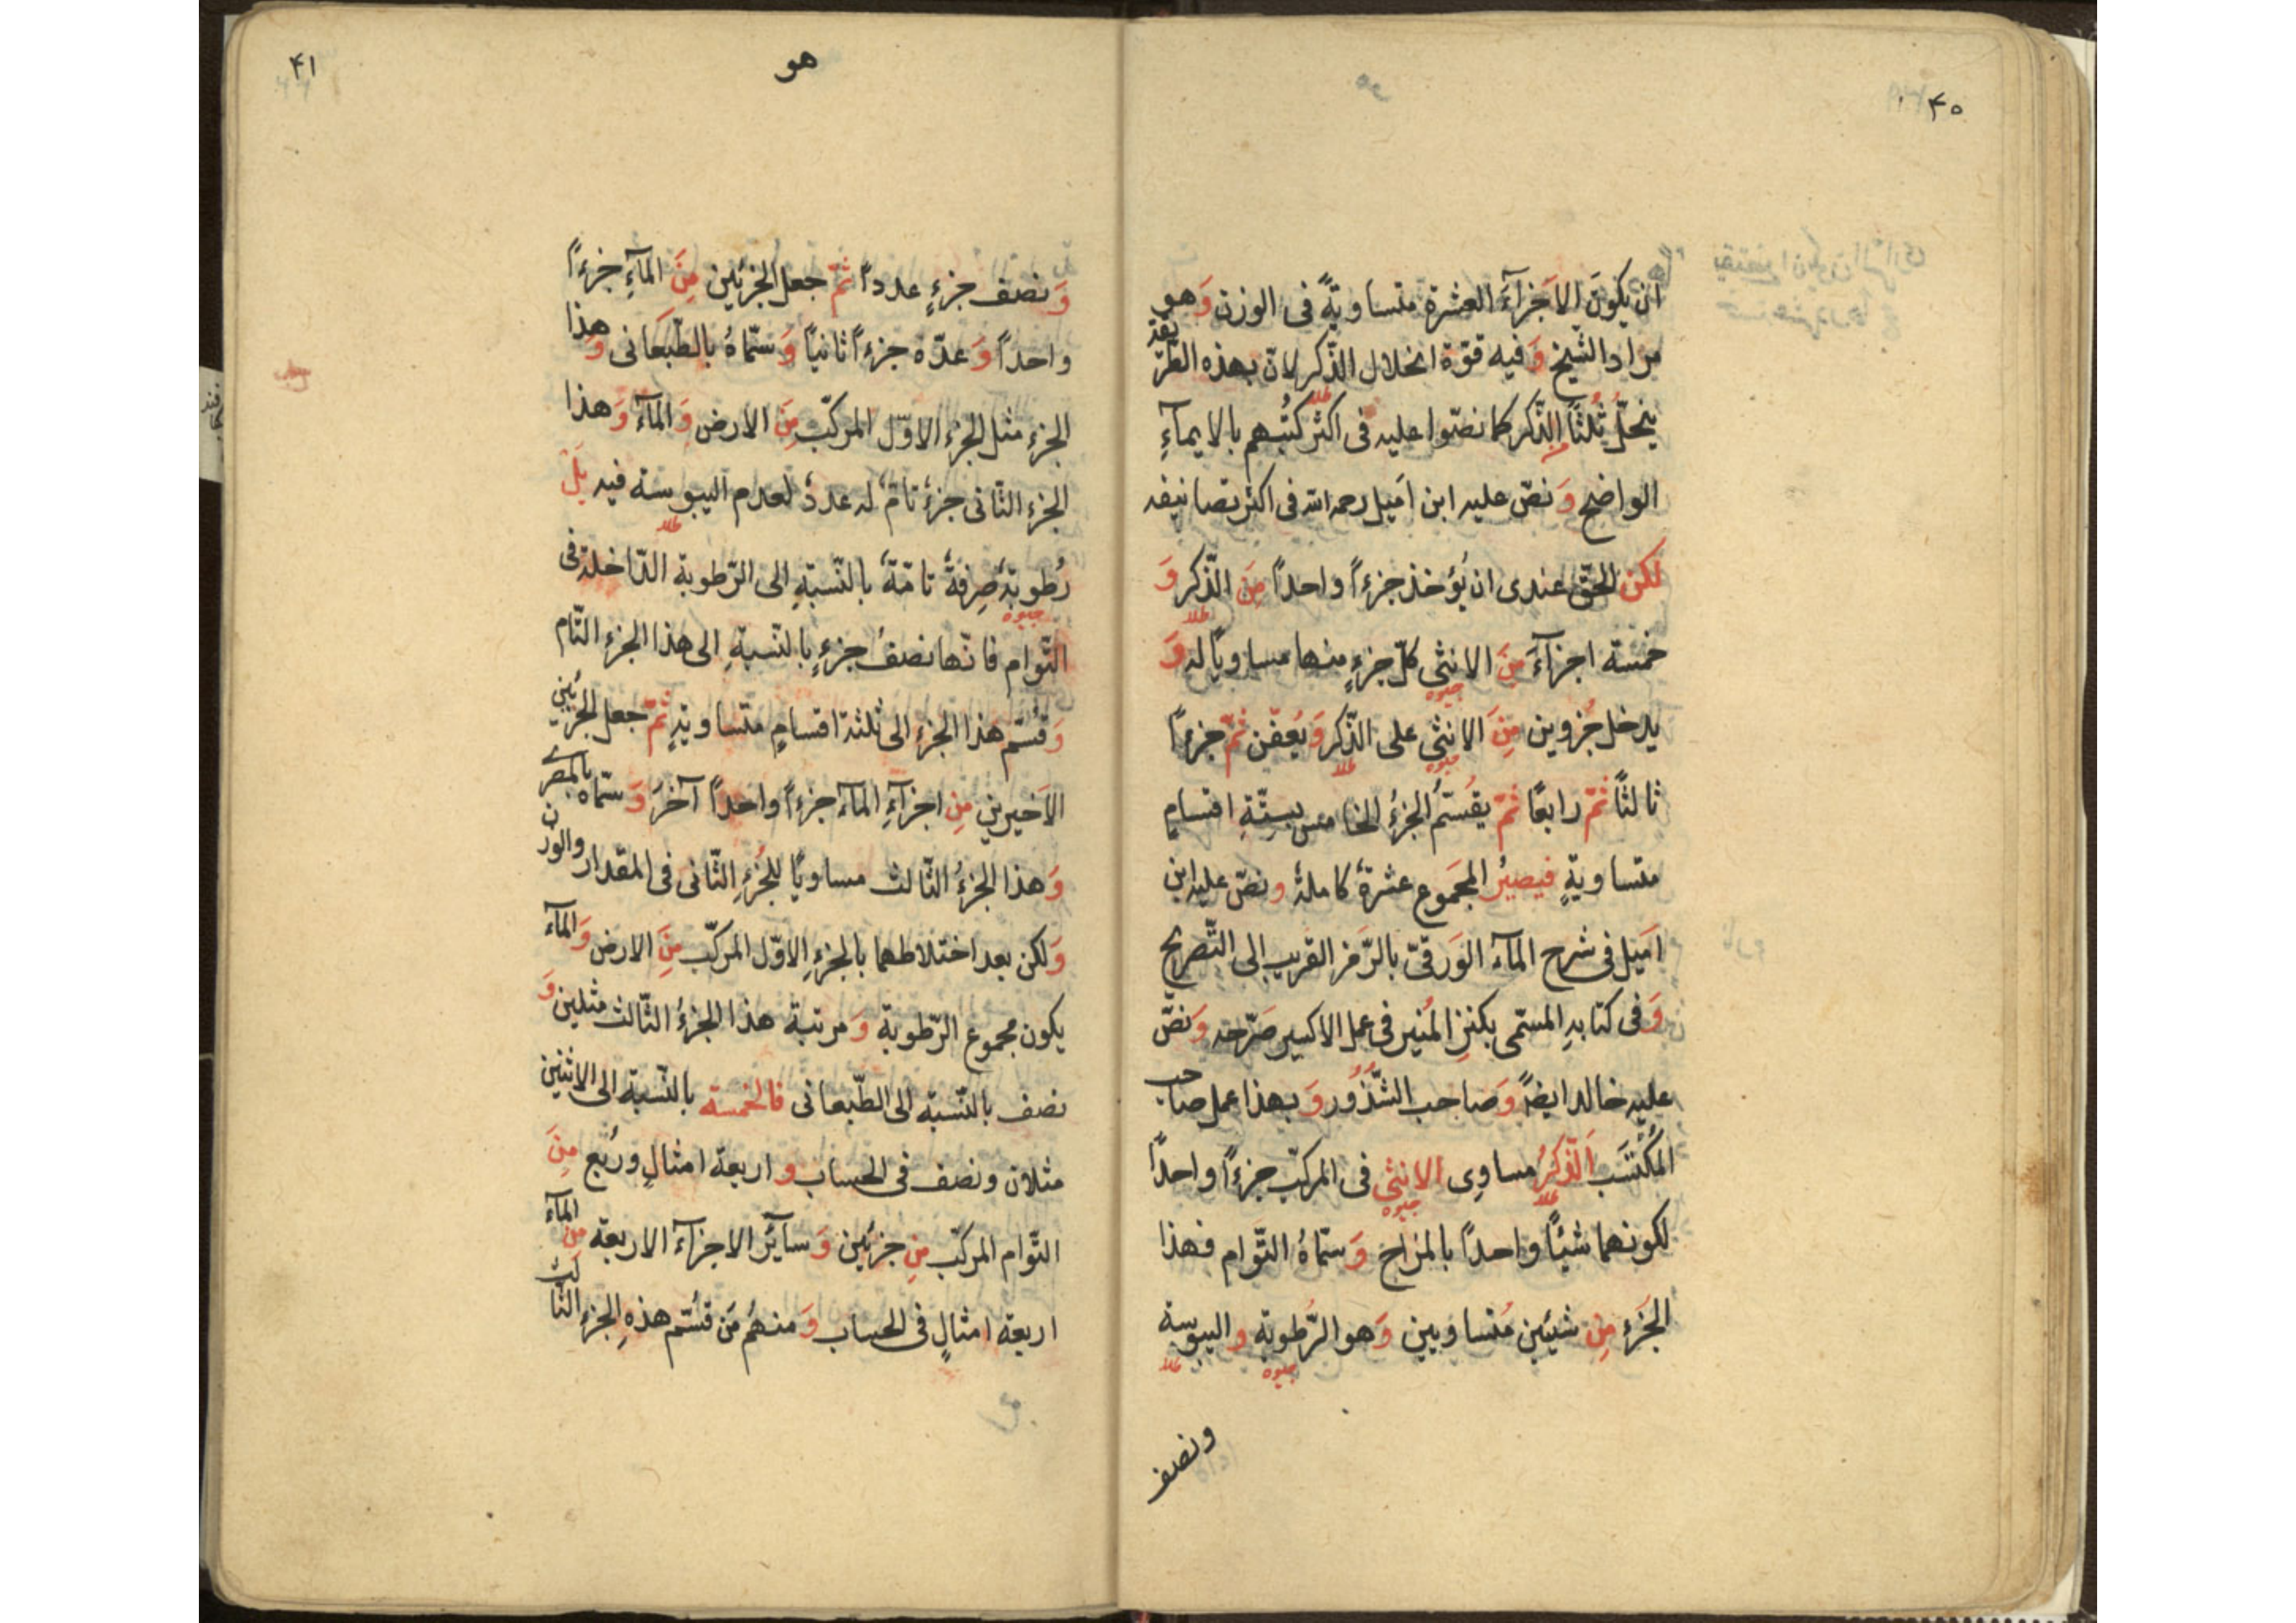 ۴۰
ان يكونَ الاَجزآءَ العشرة متساويةً فى الوزن وَهو
مراد الشيخ وَفيه قوّة انحلال الذّكر لانّ بهذه الطّريقة
ينحلّ ثُلثاً الذّكر كما نصّوا عليه فى اكثر كُتبهم بالايمآءِ
طلا
الواضح وَنصّ عليه ابن اَميل رحمه الله فى اكثر تصانيفه
لكن الحقّ عندى ان يُؤخذ جزءاً واحداً مِنَ الذّكر وَ
طلا
خمسة اجزآءَ مِنَ الانثى كلّ جزءٍ منها مساوياً له وَ
جيوه
يدخل جُزوين مِنَ الانثى على الذّكر وَيُعفّن ثمّ جزءاً
جيوه طلا
ثالثاً ثمّ رابعًا ثمّ يقُسّمُ الجزءُ الخامس بستّةِ اقسامٍ
متساويةٍ فيصيرُ المجَموع عشرةٌ كاملةٌ ونصّ عليه ابن
اَميل فى شرح المآء الوَرقىّ بالرّمز القريب الى التّصريح
وَفى كتابهِ المسمّى بكنزِ المُنير فى عمل الاكسير صَرّحه وَنصَّ
عليه خالد ايضاً وَصاحب الشّذُور وَبهذا عمل صاحب
المُكْتَسَب اَلذّكَرُ مساوِى الانثى فى المركّب جزءاً واحداً
طلا جيوه
لكونهما شيئاً واحداً بالمزاج وَسمّاهُ التّوام فهذا
الجَزءِ مِن شيئين مُتساويين وَهو الرّطوبة واليبوسة
جيوه طلا
ونصف
۴۱
هو
وَنصف جزءٍ عدداً ثمّ جعل الجزئين مِنَ المآءِ جزءاً
واحداً وَعدّه جزءاً ثانياً وَسمّاهُ بالطّبَحانى وَهذا
الجزءِ مثل الجزءِ الاوّل المركّب مِنَ الارض وَالمآءَ وَهذا
الجزءِ الثّانى جزءٌ تامٌّ له عددٌ لعدم اليبوسة فيه بَل
طلا
رُطوبةٌ صِرفةٌ تامّةٌ بالنّسبةِ الى الرّطوبة الدّاخلة فى
جيوه
التّوام فانّها نصفُ جزءٍ بالنّسبةِ الى هذا الجزءِ التّام
وَقسّم هذا الجزء الى ثلثة اقسامٍ متساويةٍ ثمّ جعل الجزئينِ
الاَخيرينِ مِن اجزآءِ المآءَ جزءاً واحداً آخَرَ وَسمّاه بالمصرى
وَهذا الجزءُ الثّالث مساويًا للجُزءِ الثّانى فى المقدار والوزن
وَلكن بعد اختلاطهما بالجزءِ الاوّل المركّب مِنَ الارض وَالمآءَ
يكون مجموع الرّطوبة وَمرتبة هذا الجزءُ الثّالث مثلين وَ
نصف بالنّسبة الى الطّبحانى فالخمسة بالنّسبة الى الاثنين
مثلان ونصف فى الحساب و اربعة امثالٍ ورُبع مِنَ
التّوام المركّب مِن جزئين وَسآئر الاجزآء الاربعة مِن المآءَ
اربعة امثالٍ فى الحساب وَمنهُم مَن قسّم هذهِ الجزءِ الثّالث